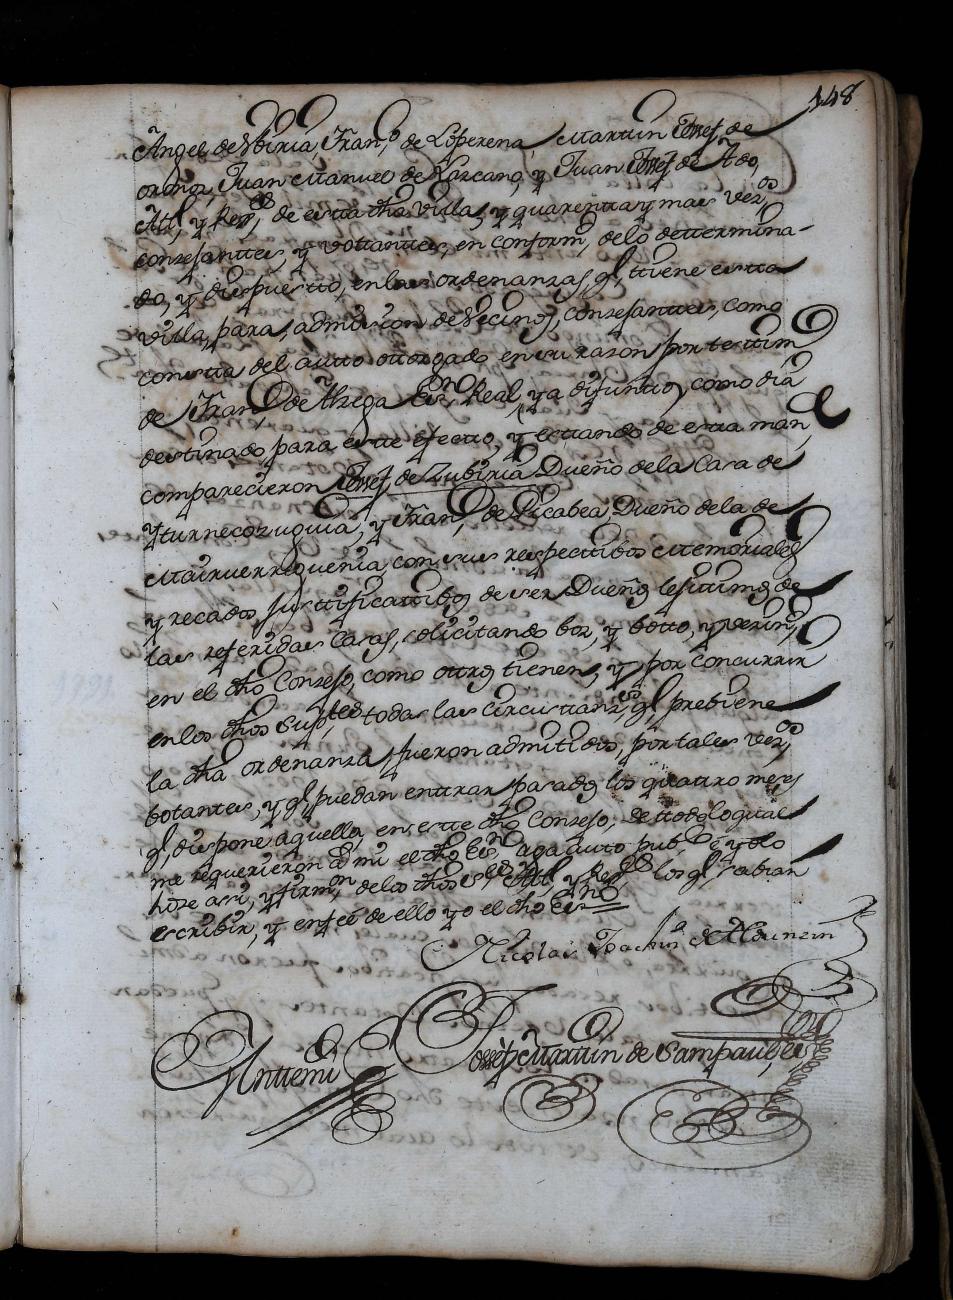 148
Angel de Vbiria, Fran.co de Loperena, Martin Josef de
ordnoz, Juan Manuel de Lazcano, y Juan Josef de Ado,
Al, y Rex.es de esta dha Villa, y quarenta y mas vez.os
consejantes, y vottantes, en conform.d delo dettermina-
do, y dispuestto, en las ordenanzas q.e tiene estta
villa, para, admision de vecinos, consejantes, como
consta del autto ottorgado en su razon por testtim.o
de Fran.co de Thega Es.no Real, ya difunto, como dia
destinado para este efecto, y estando de esta man.a
comparecieron Josef de Zubiria Dueño de la Casa de
Yturnecozuguia, y Fran.co de Licabea, Dueño dela de
Mairuerrequenia, con sus respecttibos Memoriales
y recados, justtificattibos de ser Dueños lejitimos de
las referidas Casas, solicitando boz, y botto, y
en el dho Consejo, como ottros tienen, y por concurrir
en los dhos sup.tes todas las circustanz.as q.e prebiene
la dha ordenanza, fueron admitidos, por tales vez.os
botantes, y q.e puedan entrar pasados los quattro meses
q.e dispone aquella, en este dho Consejo, de ttodo lo qual
me requirieron a mi el dho Es.no aga auto pub.co é yo lo
hize asi, y firm.on delos dhos S.res Al y Rex.es los q.e sabian
escribir, y enfeé de ello yo el dho Es.no
Nicolas Joachin de Aldunzin
Anttemi Josséph Martin de Sampaul, es.no